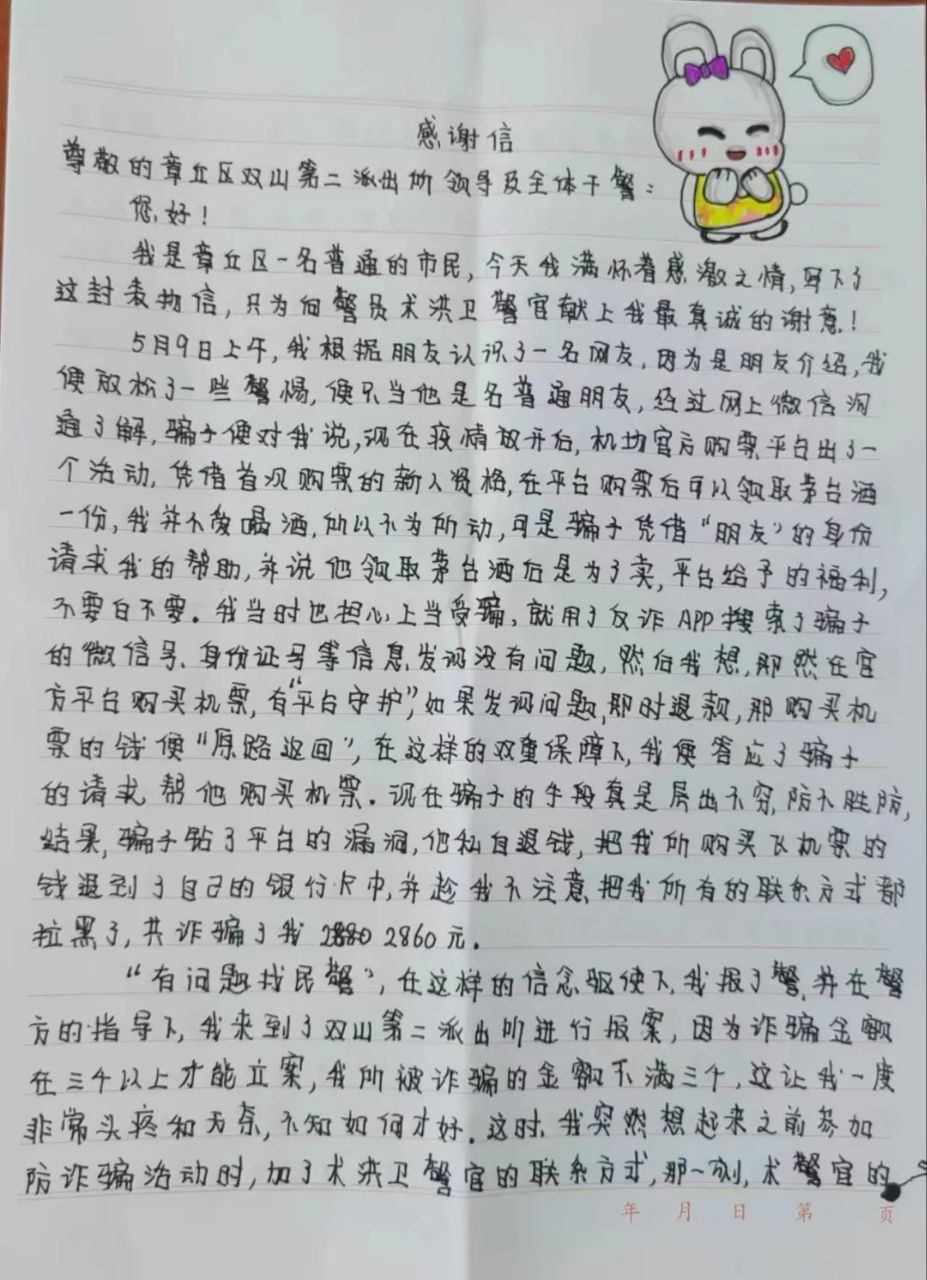 感谢信
尊敬的章丘区双山第二派出所领导及全体干警：
您好！
我是章丘区一名普通的市民，今天我满怀着感激之情，写下了
这封表扬信，只为向警员术洪卫警官献上我最真诚的谢意！
5月9日上午，我根据朋友认识了一名网友，因为是朋友介绍，我
便放松了一些警惕，便只当他是名普通朋友，经过网上微信沟
通了解，骗子便对我说，现在疫情放开后，机场官方购票平台出了一
个活动，凭借首次购票的新人资格，在平台购票后可以领取茅台酒
一份，我并不爱喝酒，所以不为所动，可是骗子凭借“朋友”的身份
请求我的帮助，并说他领取茅台酒后是为了卖，平台给予的福利，
不要白不要。我当时也担心上当受骗，就用了反诈APP搜索了骗子
的微信号、身份证号等信息，发现没有问题，然后我想，那然在官
方平台购买机票，有“平台守护”，如果发现问题，即时退款，那购买机
票的钱便“原路返回”，在这样的双重保障下，我便答应了骗子
的请求，帮他购买机票。现在骗子的手段真是层出不穷，防不胜防，
结果，骗子钻了平台的漏洞，他私自退钱，把我所购买飞机票的
钱退到了自己的银行卡中，并趁我不注意把我所有的联系方式都
拉黑了，共诈骗了我2860元。
“有问题找民警”，在这样的信念驱使下，我报了警，并在警
方的指导下，我来到了双山第二派出所进行报案，因为诈骗金额
在三个以上才能立案，我所被诈骗的金额不满三个，这让我一度
非常头疼和无奈，不知如何才好。这时，我突然想起来之前参加
防诈骗活动时，加了术洪卫警官的联系方式，那一刻，术警官的
年 月 日 第 页